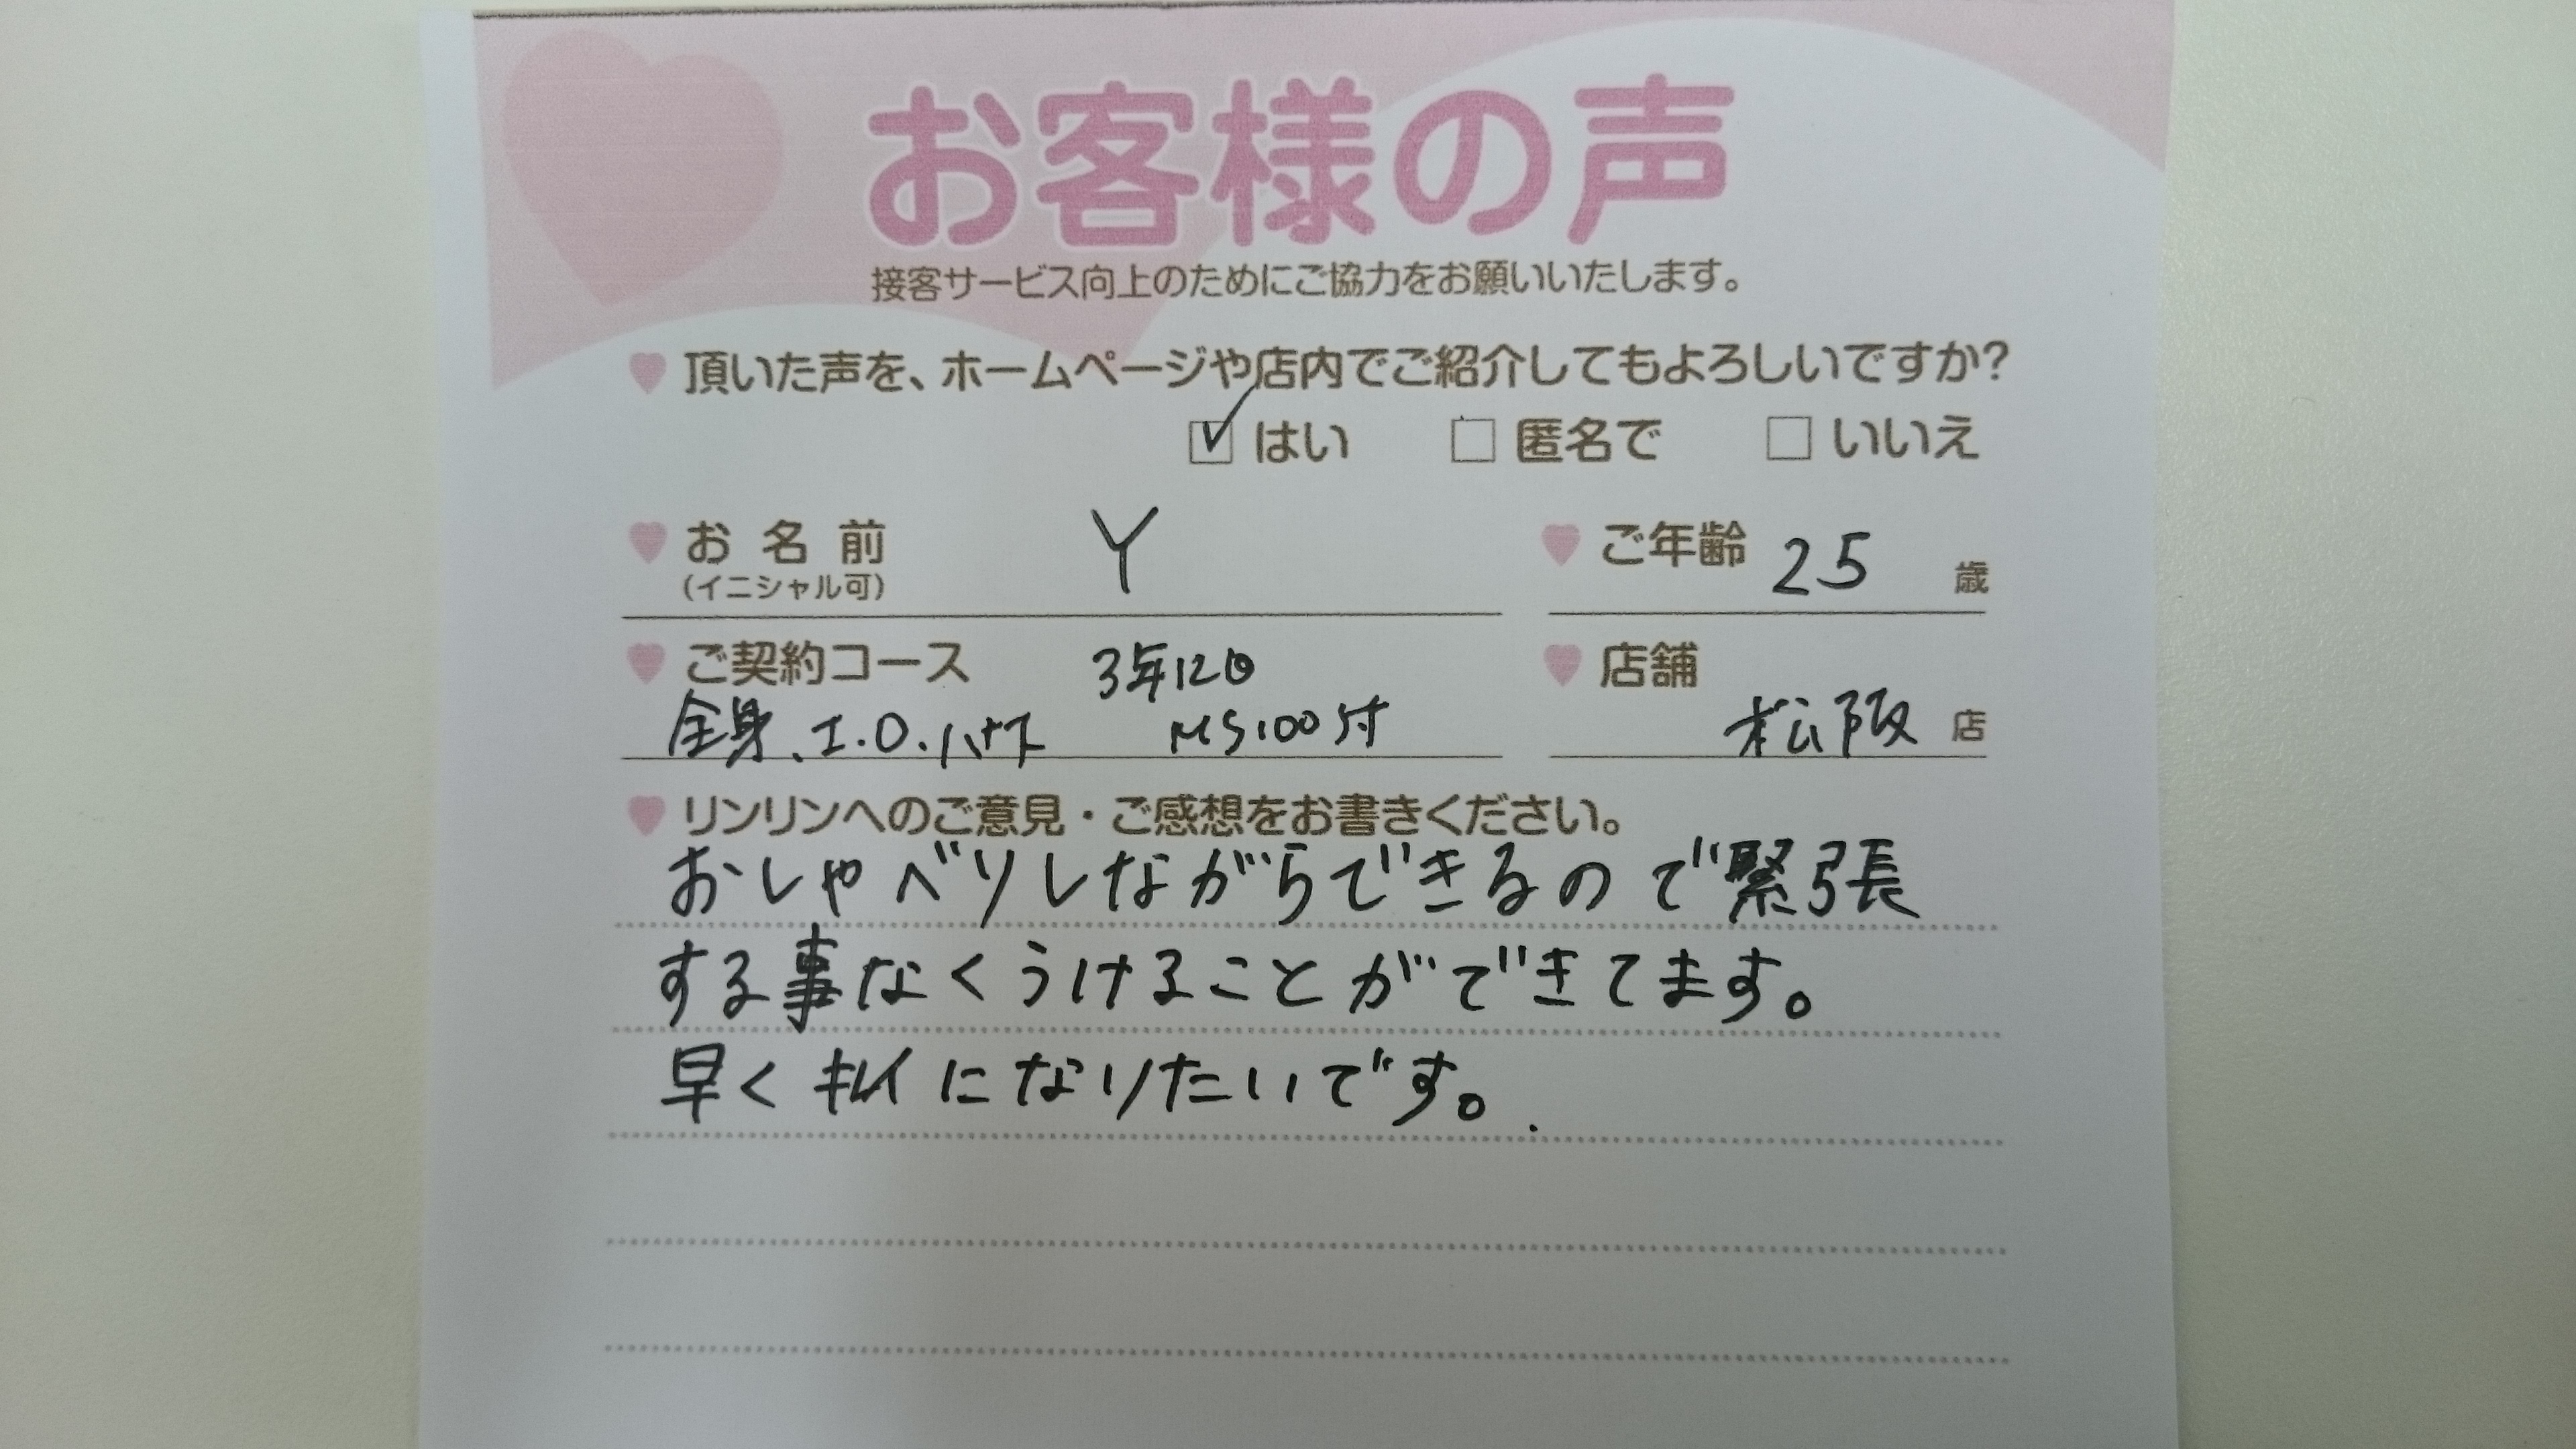 お客様の声
接客サービス向上のためにご協力をお願いいたします。
頂いた声を、ホームページや店内でご紹介してもよろしいですか?
はい 匿名で いいえ
お名前 Y ご年齢 25 歳
(イニシャル可)
ご契約コース 3年12回 店舗
全身、I.O.ハナ下 MS100付 松阪 店
リンリンへのご意見・ご感想をお書きください。
おしゃべりしながらできるので緊張
する事なくうけることができてます。
早くキレイになりたいです。